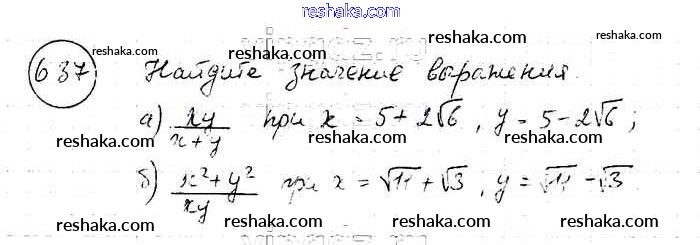 reshaka.com
637 Найдите значение выражения.
а) xy/(x+y) при x = 5+2√6, y = 5-2√6;
б) (x²+y²)/(xy) при x = √11+√3, y = √11-√3.
reshaka.com reshaka.com reshaka.com reshaka.com
reshaka.com reshaka.com reshaka.com
reshaka.com reshaka.com reshaka.com
reshaka.com reshaka.com reshaka.com reshaka.com